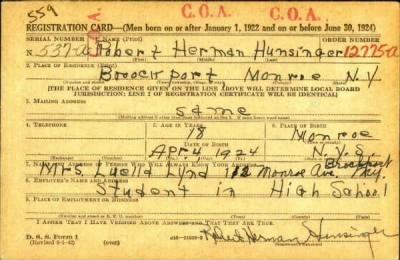 559
C.O.A. C.O.A.
C.O.A.
REGISTRATION CARD—(Men born on or after January 1, 1922 and on or before June 30, 1924)
SERIAL NUMBER ORDER NUMBER
N 537-A Robert Herman Hunsinger 12775-A
2. PLACE OF RESIDENCE
Broockport Monroe N.Y.
[THE PLACE OF RESIDENCE GIVEN ON THE LINE ABOVE WILL DETERMINE LOCAL BOARD
JURISDICTION; LINE 2 OF REGISTRATION CERTIFICATE WILL BE IDENTICAL]
3. MAILING ADDRESS
same
4. TELEPHONE 5. AGE IN YEARS 6. PLACE OF BIRTH
18 Monroe
DATE OF BIRTH
Apr 4 1924 N.Y.S.
7. NAME AND ADDRESS OF PERSON WHO WILL ALWAYS KNOW YOUR ADDRESS Brockport
Mrs Luella Lynd 112 Monroe Ave N.Y.
8. EMPLOYER'S NAME AND ADDRESS
Student in High School
9. PLACE OF EMPLOYMENT OR BUSINESS
I AFFIRM THAT I HAVE VERIFIED ABOVE ANSWERS AND THAT THEY ARE TRUE.
D. S. S. Form 1
Robert Herman Hunsinger